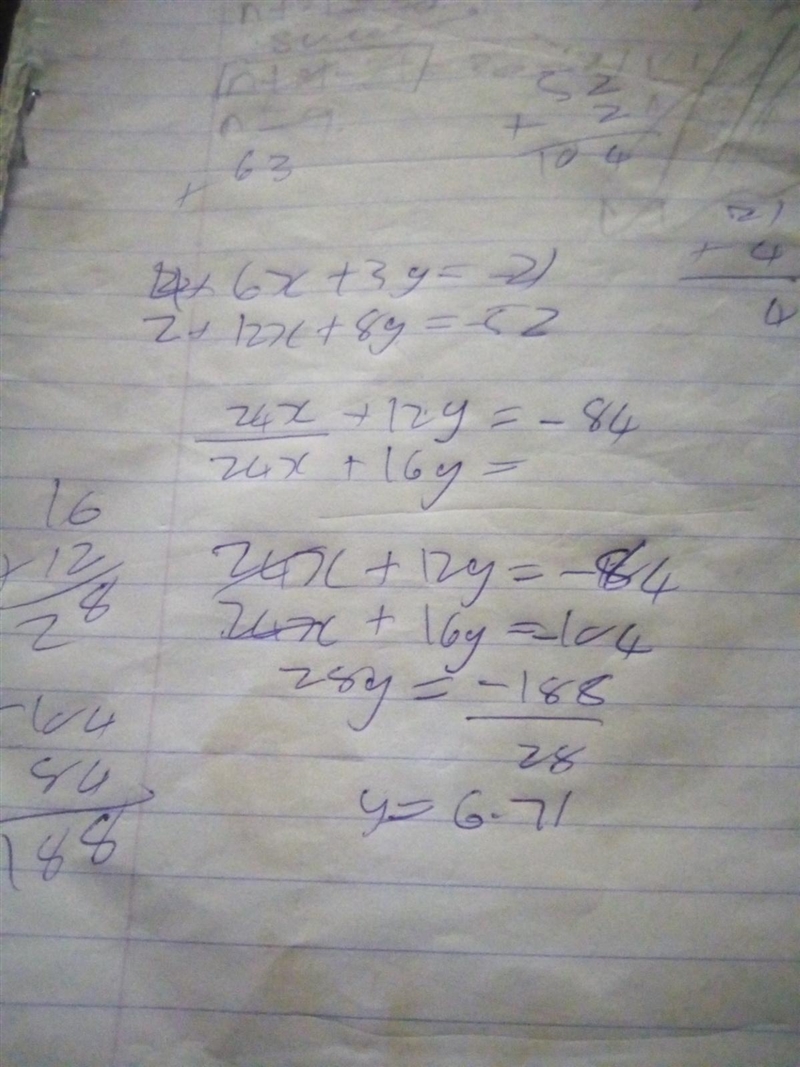 52
+ 2
104
+ 63
21
+ 4
4
6x + 3y = -21
2+ 12x + 8y = -52
24x + 12y = -84
24x + 16y =
16
+ 12
28
24x + 12y = -84
24x + 16y = -104
28y = -188
28
y = 6.71
-104
84
188